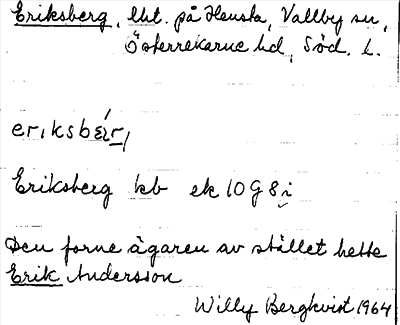 Eriksberg, lht. på Henska, Vallby sn,
Österrekarne hd, Söd. l.
Eriksberg kb ek 10 G 8 i
Den forne ägaren av stället hette
Erik Andersson
Willy Bergkvist 1964